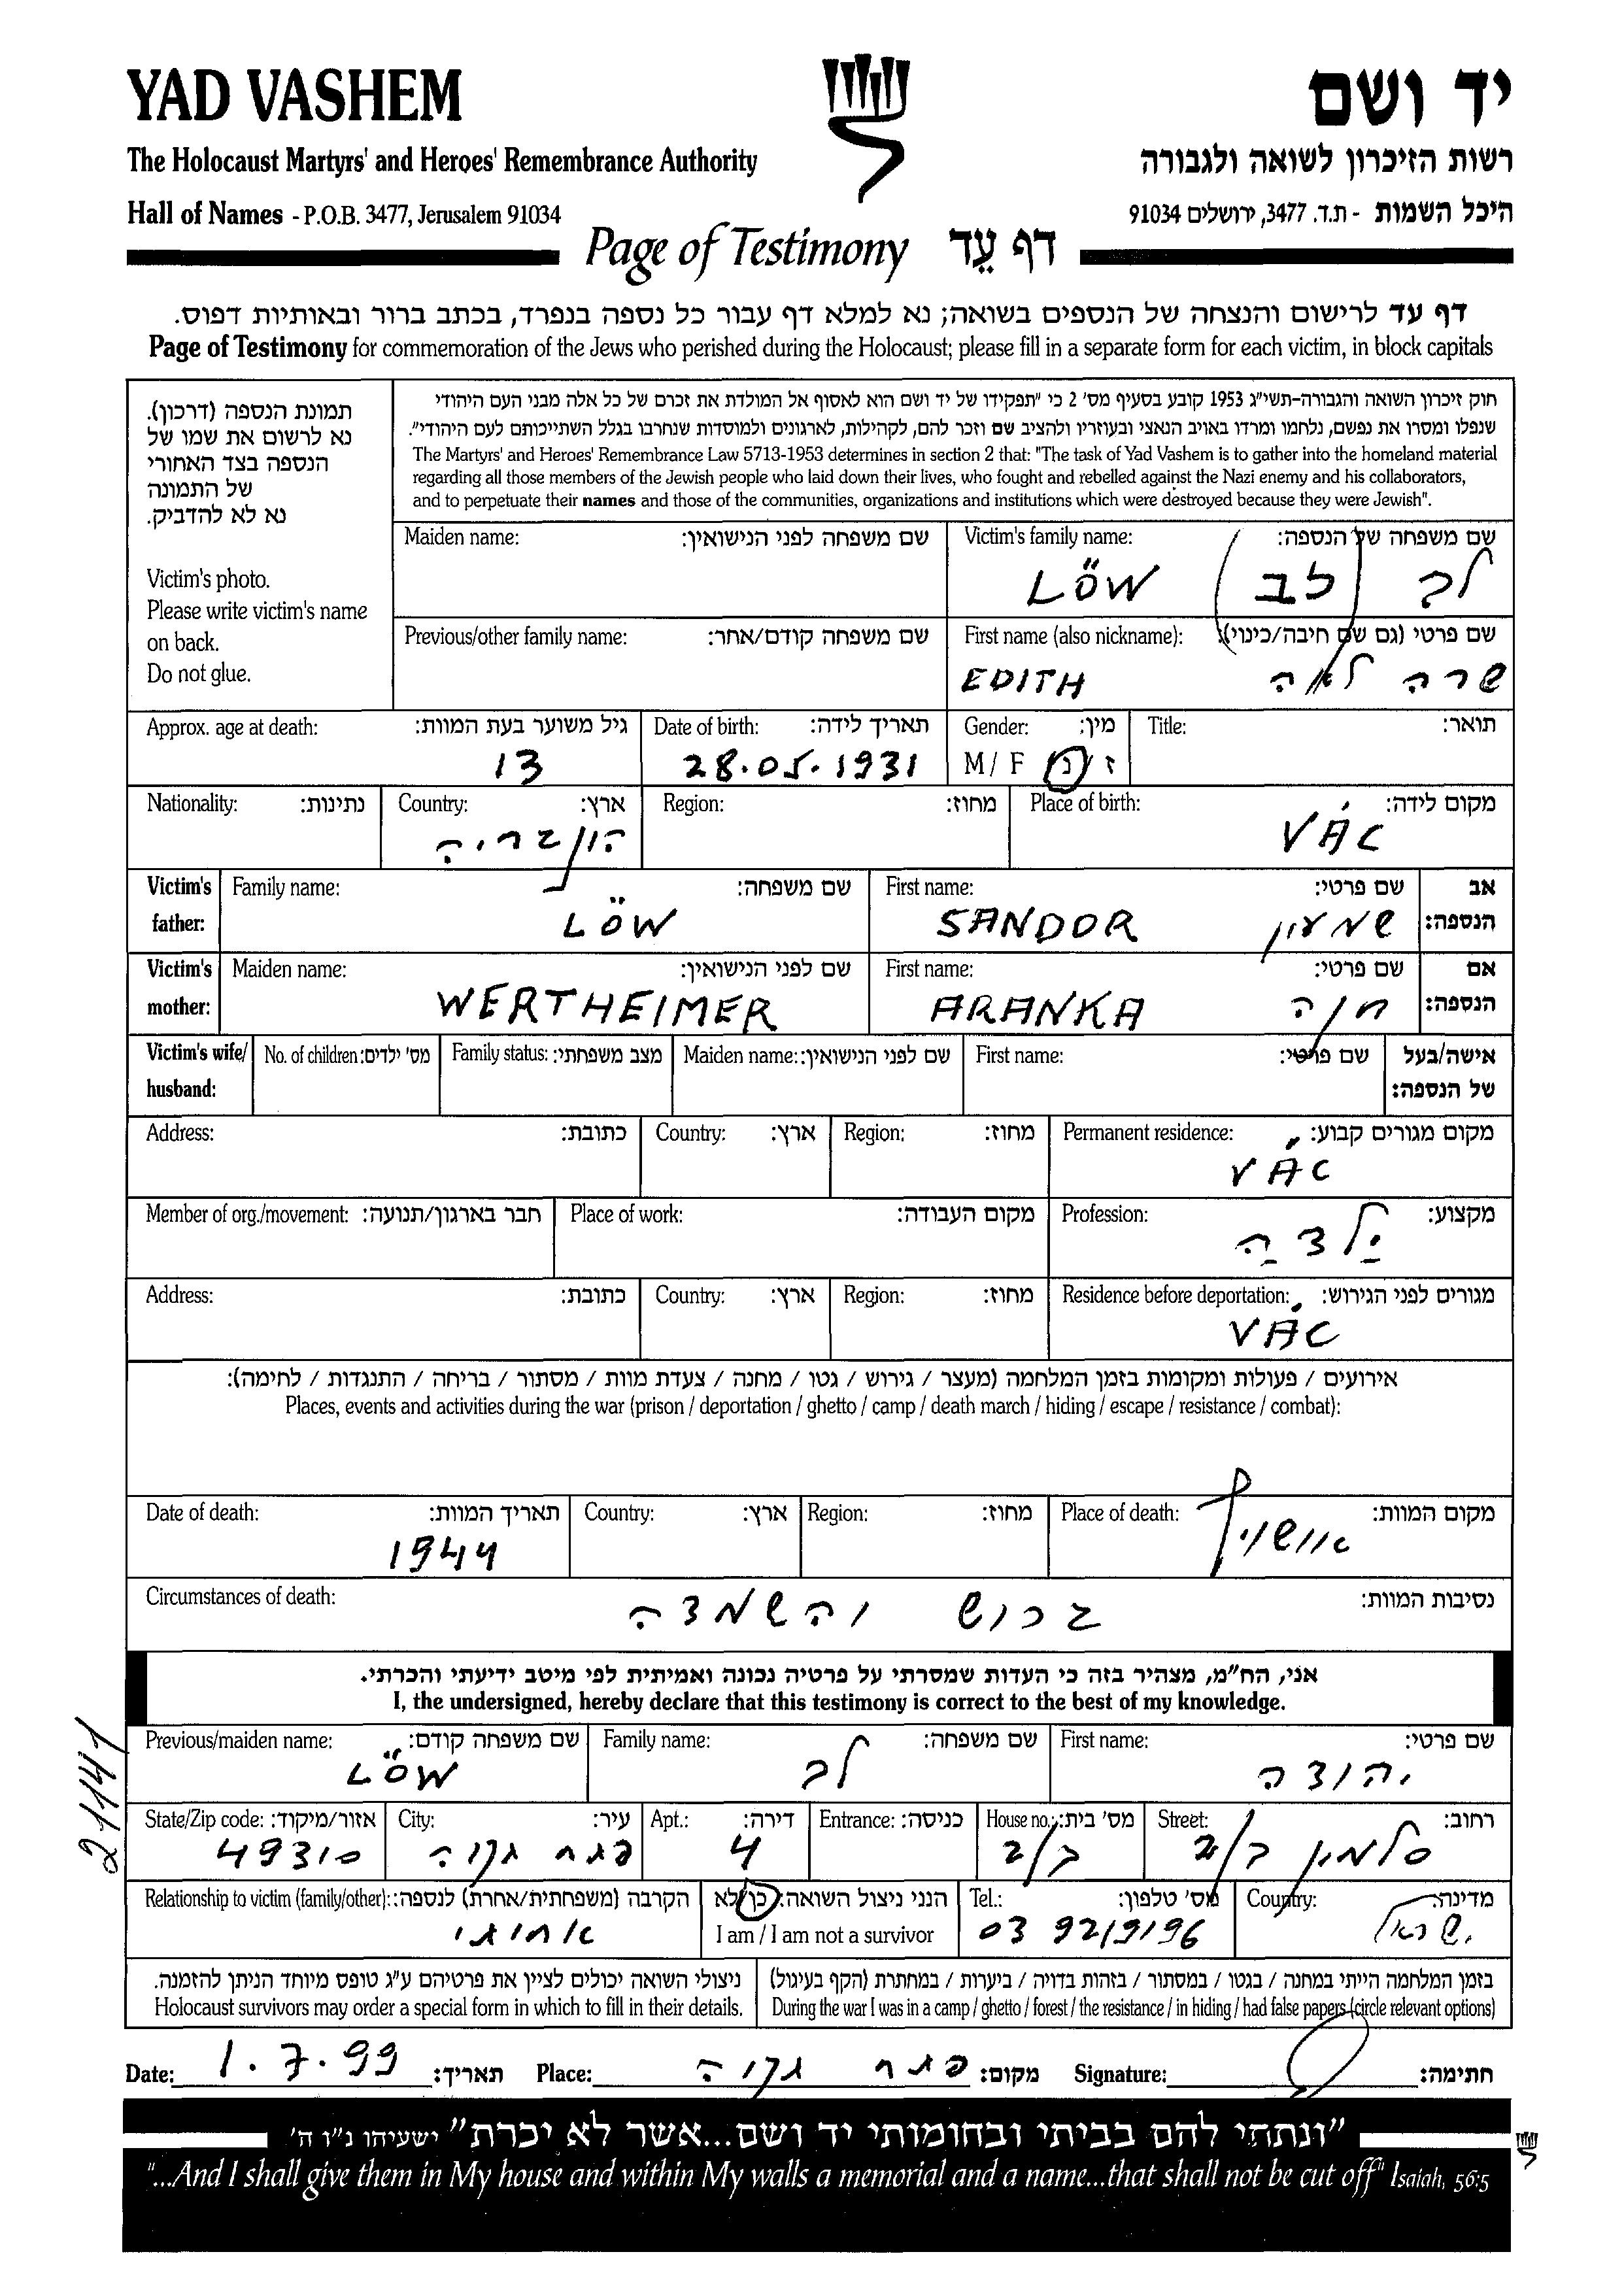 YAD VASHEM
יד ושם
The Holocaust Martyrs' and Heroes' Remembrance Authority
רשות הזיכרון לשואה ולגבורה
Hall of Names - P.O.B. 3477, Jerusalem 91034
היכל השמות - ת.ד. 3477, ירושלים 91034
Page of Testimony דף עֵד
דף עד לרישום והנצחה של הנספים בשואה; נא למלא דף עבור כל נספה בנפרד, בכתב ברור ובאותיות דפוס.
Page of Testimony for commemoration of the Jews who perished during the Holocaust; please fill in a separate form for each victim, in block capitals
תמונת הנספה (דרכון).
נא לרשום את שמו של
הנספה בצד האחורי
של התמונה
נא לא להדביק.
Victim's photo.
Please write victim's name
on back.
Do not glue.
חוק זיכרון השואה והגבורה-תשי"ג 1953 קובע בסעיף מס' 2 כי "תפקידו של יד ושם הוא לאסוף אל המולדת את זכרם של כל אלה מבני העם היהודי
שנפלו ומסרו את נפשם, נלחמו ומרדו באויב הנאצי ובעוזריו ולהציב שם וזכר להם, לקהילות, לארגונים ולמוסדות שנחרבו בגלל השתייכותם לעם היהודי".
The Martyrs' and Heroes' Remembrance Law 5713-1953 determines in section 2 that: "The task of Yad Vashem is to gather into the homeland material
regarding all those members of the Jewish people who laid down their lives, who fought and rebelled against the Nazi enemy and his collaborators,
and to perpetuate their names and those of the communities, organizations and institutions which were destroyed because they were Jewish".
Victim's family name: שם משפחה של הנספה:
לב (לב) LÖW
Maiden name: שם משפחה לפני הנישואין:
First name (also nickname): שם פרטי (גם שם חיבה/כינוי):
שרה לאה EDITH
Previous/other family name: שם משפחה קודם/אחר:
Title: תואר:
Gender: מין:
M / F ז / נ
Date of birth: תאריך לידה:
28.05.1931
Approx. age at death: גיל משוער בעת המוות:
13
Place of birth: מקום לידה:
VÁC
Region: מחוז:
Country: ארץ:
הונגריה
Nationality: נתינות:
Victim's father: אב הנספה:
First name: שם פרטי:
שמעון SANDOR
Family name: שם משפחה:
LÖW
Victim's mother: אם הנספה:
First name: שם פרטי:
חנה ARANKA
Maiden name: שם לפני הנישואין:
WERTHEIMER
Victim's wife/ husband: אישה/בעל של הנספה:
First name: שם פרטי:
Maiden name: שם לפני הנישואין:
Family status: מצב משפחתי:
No. of children: מס' ילדים:
Permanent residence: מקום מגורים קבוע:
VÁC
Region: מחוז:
Country: ארץ:
Address: כתובת:
Profession: מקצוע:
ילדה
Place of work: מקום העבודה:
Member of org./movement: חבר בארגון/תנועה:
Residence before deportation: מגורים לפני הגירוש:
VÁC
Region: מחוז:
Country: ארץ:
Address: כתובת:
אירועים / פעולות ומקומות בזמן המלחמה (מעצר / גירוש / גטו / מחנה / צעדת מוות / מסתור / בריחה / התנגדות / לחימה):
Places, events and activities during the war (prison / deportation / ghetto / camp / death march / hiding / escape / resistance / combat):
Place of death: מקום המוות:
אוושויץ
Region: מחוז:
Country: ארץ:
Date of death: תאריך המוות:
1944
Circumstances of death: נסיבות המוות:
גרוש והשמדה
אני, הח"מ, מצהיר בזה כי העדות שמסרתי על פרטיה נכונה ואמיתית לפי מיטב ידיעתי והכרתי.
I, the undersigned, hereby declare that this testimony is correct to the best of my knowledge.
21141
First name: שם פרטי:
יהודה
Family name: שם משפחה:
לב
Previous/maiden name: שם משפחה קודם:
LÖW
Street: רחוב:
סלמון 2/ב
House no.: מס' בית:
2/ב
Entrance: כניסה:
Apt.: דירה:
4
City: עיר:
פתח תקוה
State/Zip code: אזור/מיקוד:
49310
Country: מדינה:
ישראל
Tel.: מס' טלפון:
03 9219196
הנני ניצול השואה: כן/לא
I am / I am not a survivor
Relationship to victim (family/other): הקרבה (משפחתית/אחרת) לנספה:
אחותי
בזמן המלחמה הייתי במחנה / בגטו / במסתור / בזהות בדויה / ביערות / במחתרת (הקף בעיגול)
During the war I was in a camp / ghetto / forest / the resistance / in hiding / had false papers (circle relevant options)
ניצולי השואה יכולים לציין את פרטיהם ע"ג טופס מיוחד הניתן להזמנה.
Holocaust survivors may order a special form in which to fill in their details.
Date: 1.7.99 תאריך: Place: פתח תקוה מקום: Signature: חתימה:
"ונתתי להם בביתי ובחומותי יד ושם...אשר לא יכרת" ישעיהו נ"ו ה'
"...And I shall give them in My house and within My walls a memorial and a name...that shall not be cut off" Isaiah, 56:5